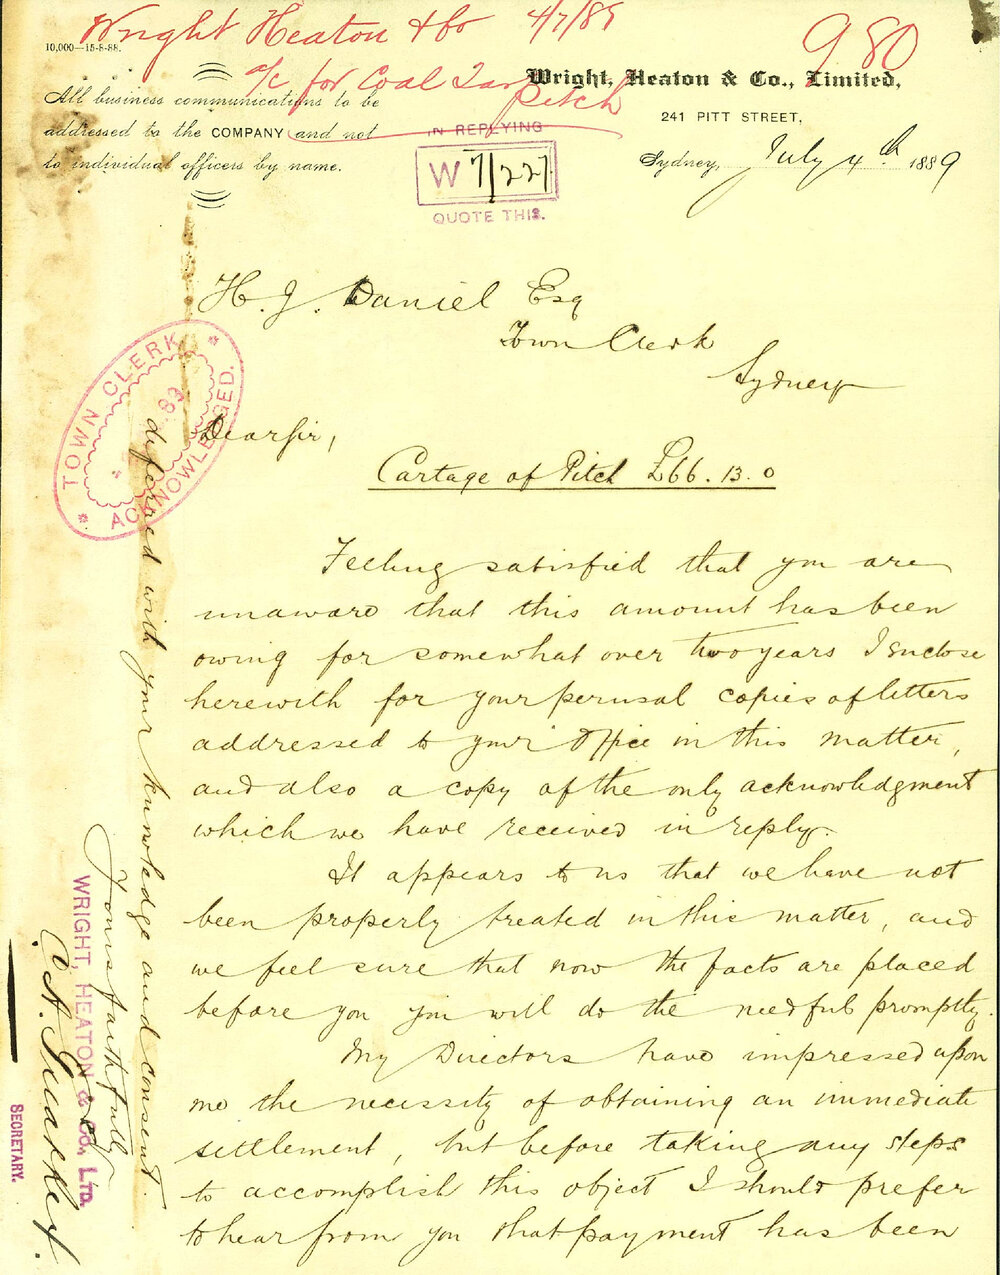 Wright Heaton & Co 4/7/89
980
a/c for Coal Tar
Pitch
10,000—15-8-88.
All business communications to be
addressed to the COMPANY and not
to individual officers by name.
Wright, Heaton & Co., Limited,
241 PITT STREET,
Sydney, July 4th 1889
IN REPLYING
W 7/227
QUOTE THIS.
H. J. Daniel Esq
Town Clerk
Sydney
TOWN CLERK
89
ACKNOWLEDGED.
Dear Sir,
Cartage of Pitch £66. 13. 0
Feeling satisfied that you are
unaware that this amount has been
owing for somewhat over two years I enclose
herewith for your perusal copies of letters
addressed to your Office in this matter,
and also a copy of the only acknowledgment
which we have received in reply.
It appears to us that we have not
been properly treated in this matter, and
we feel sure that now the facts are placed
before you you will do the needful promptly.
My Directors have impressed upon
me the necessity of obtaining an immediate
settlement, but before taking any steps
to accomplish this object I should prefer
to hear from you that payment has been
deferred with your knowledge and consent.
Yours faithfully
WRIGHT, HEATON & Co., LTD.
SECRETARY.